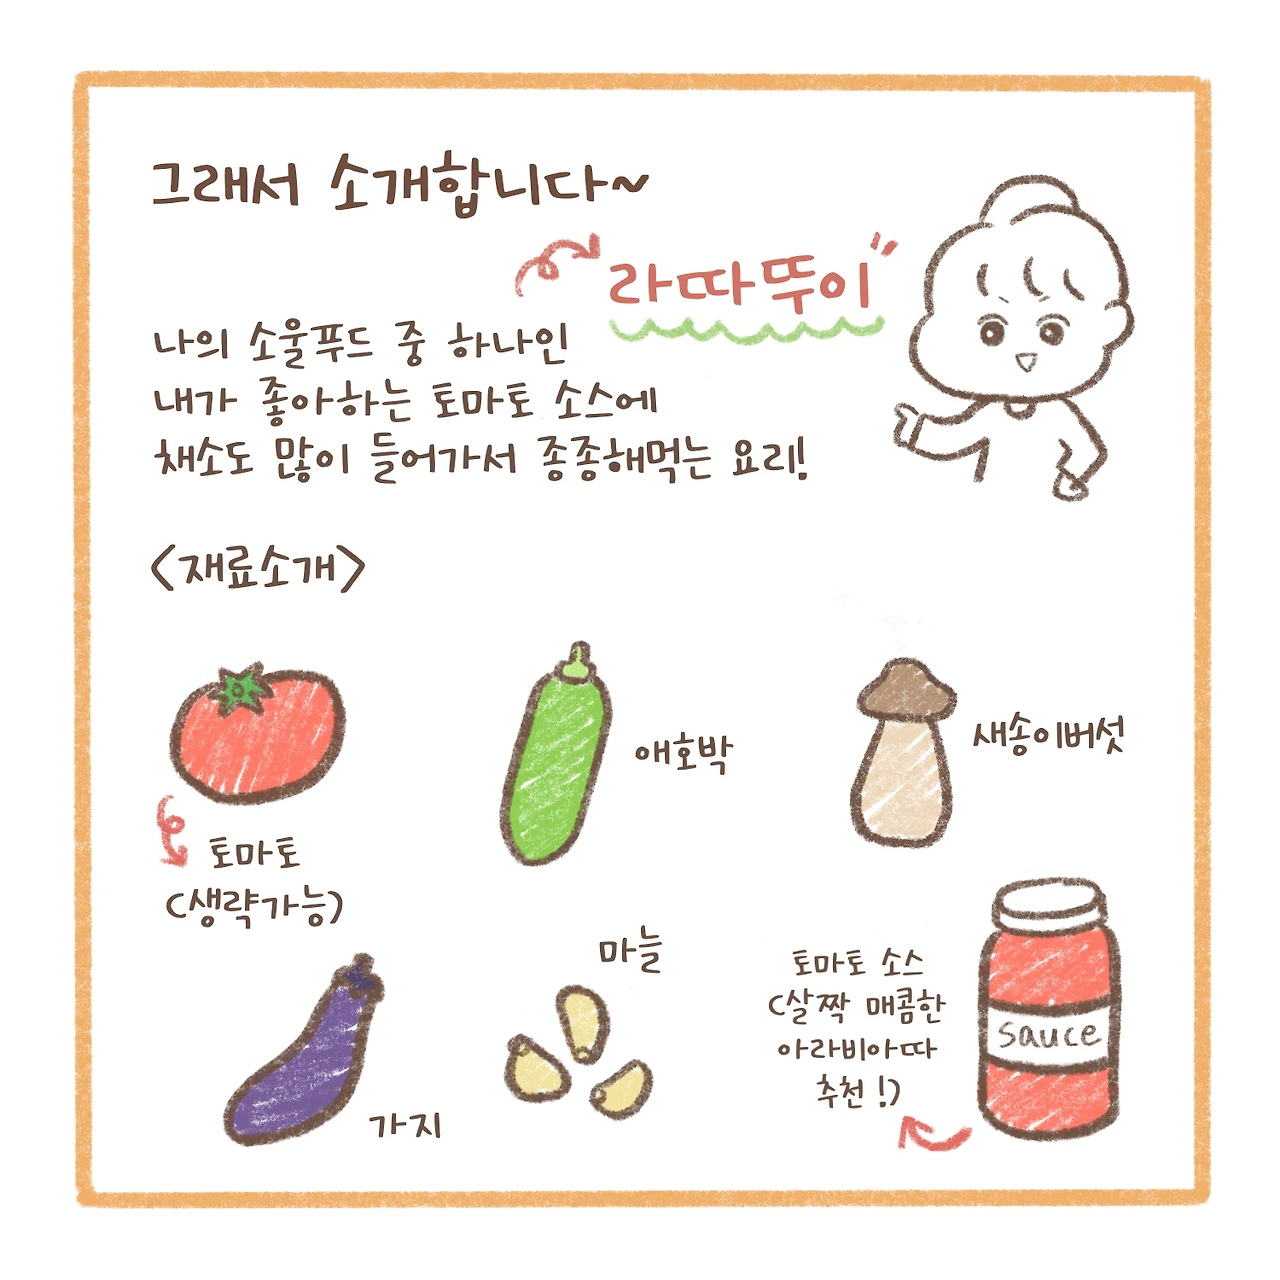 그래서 소개합니다~
라따뚜이"
나의 소울푸드 중 하나인
내가 좋아하는 토마토 소스에
채소도 많이 들어가서 종종해먹는 요리!
<재료소개>
토마토
(생략가능)
애호박
새송이버섯
가지
마늘
토마토 소스
(살짝 매콤한
아라비아따
추천!)
sauce